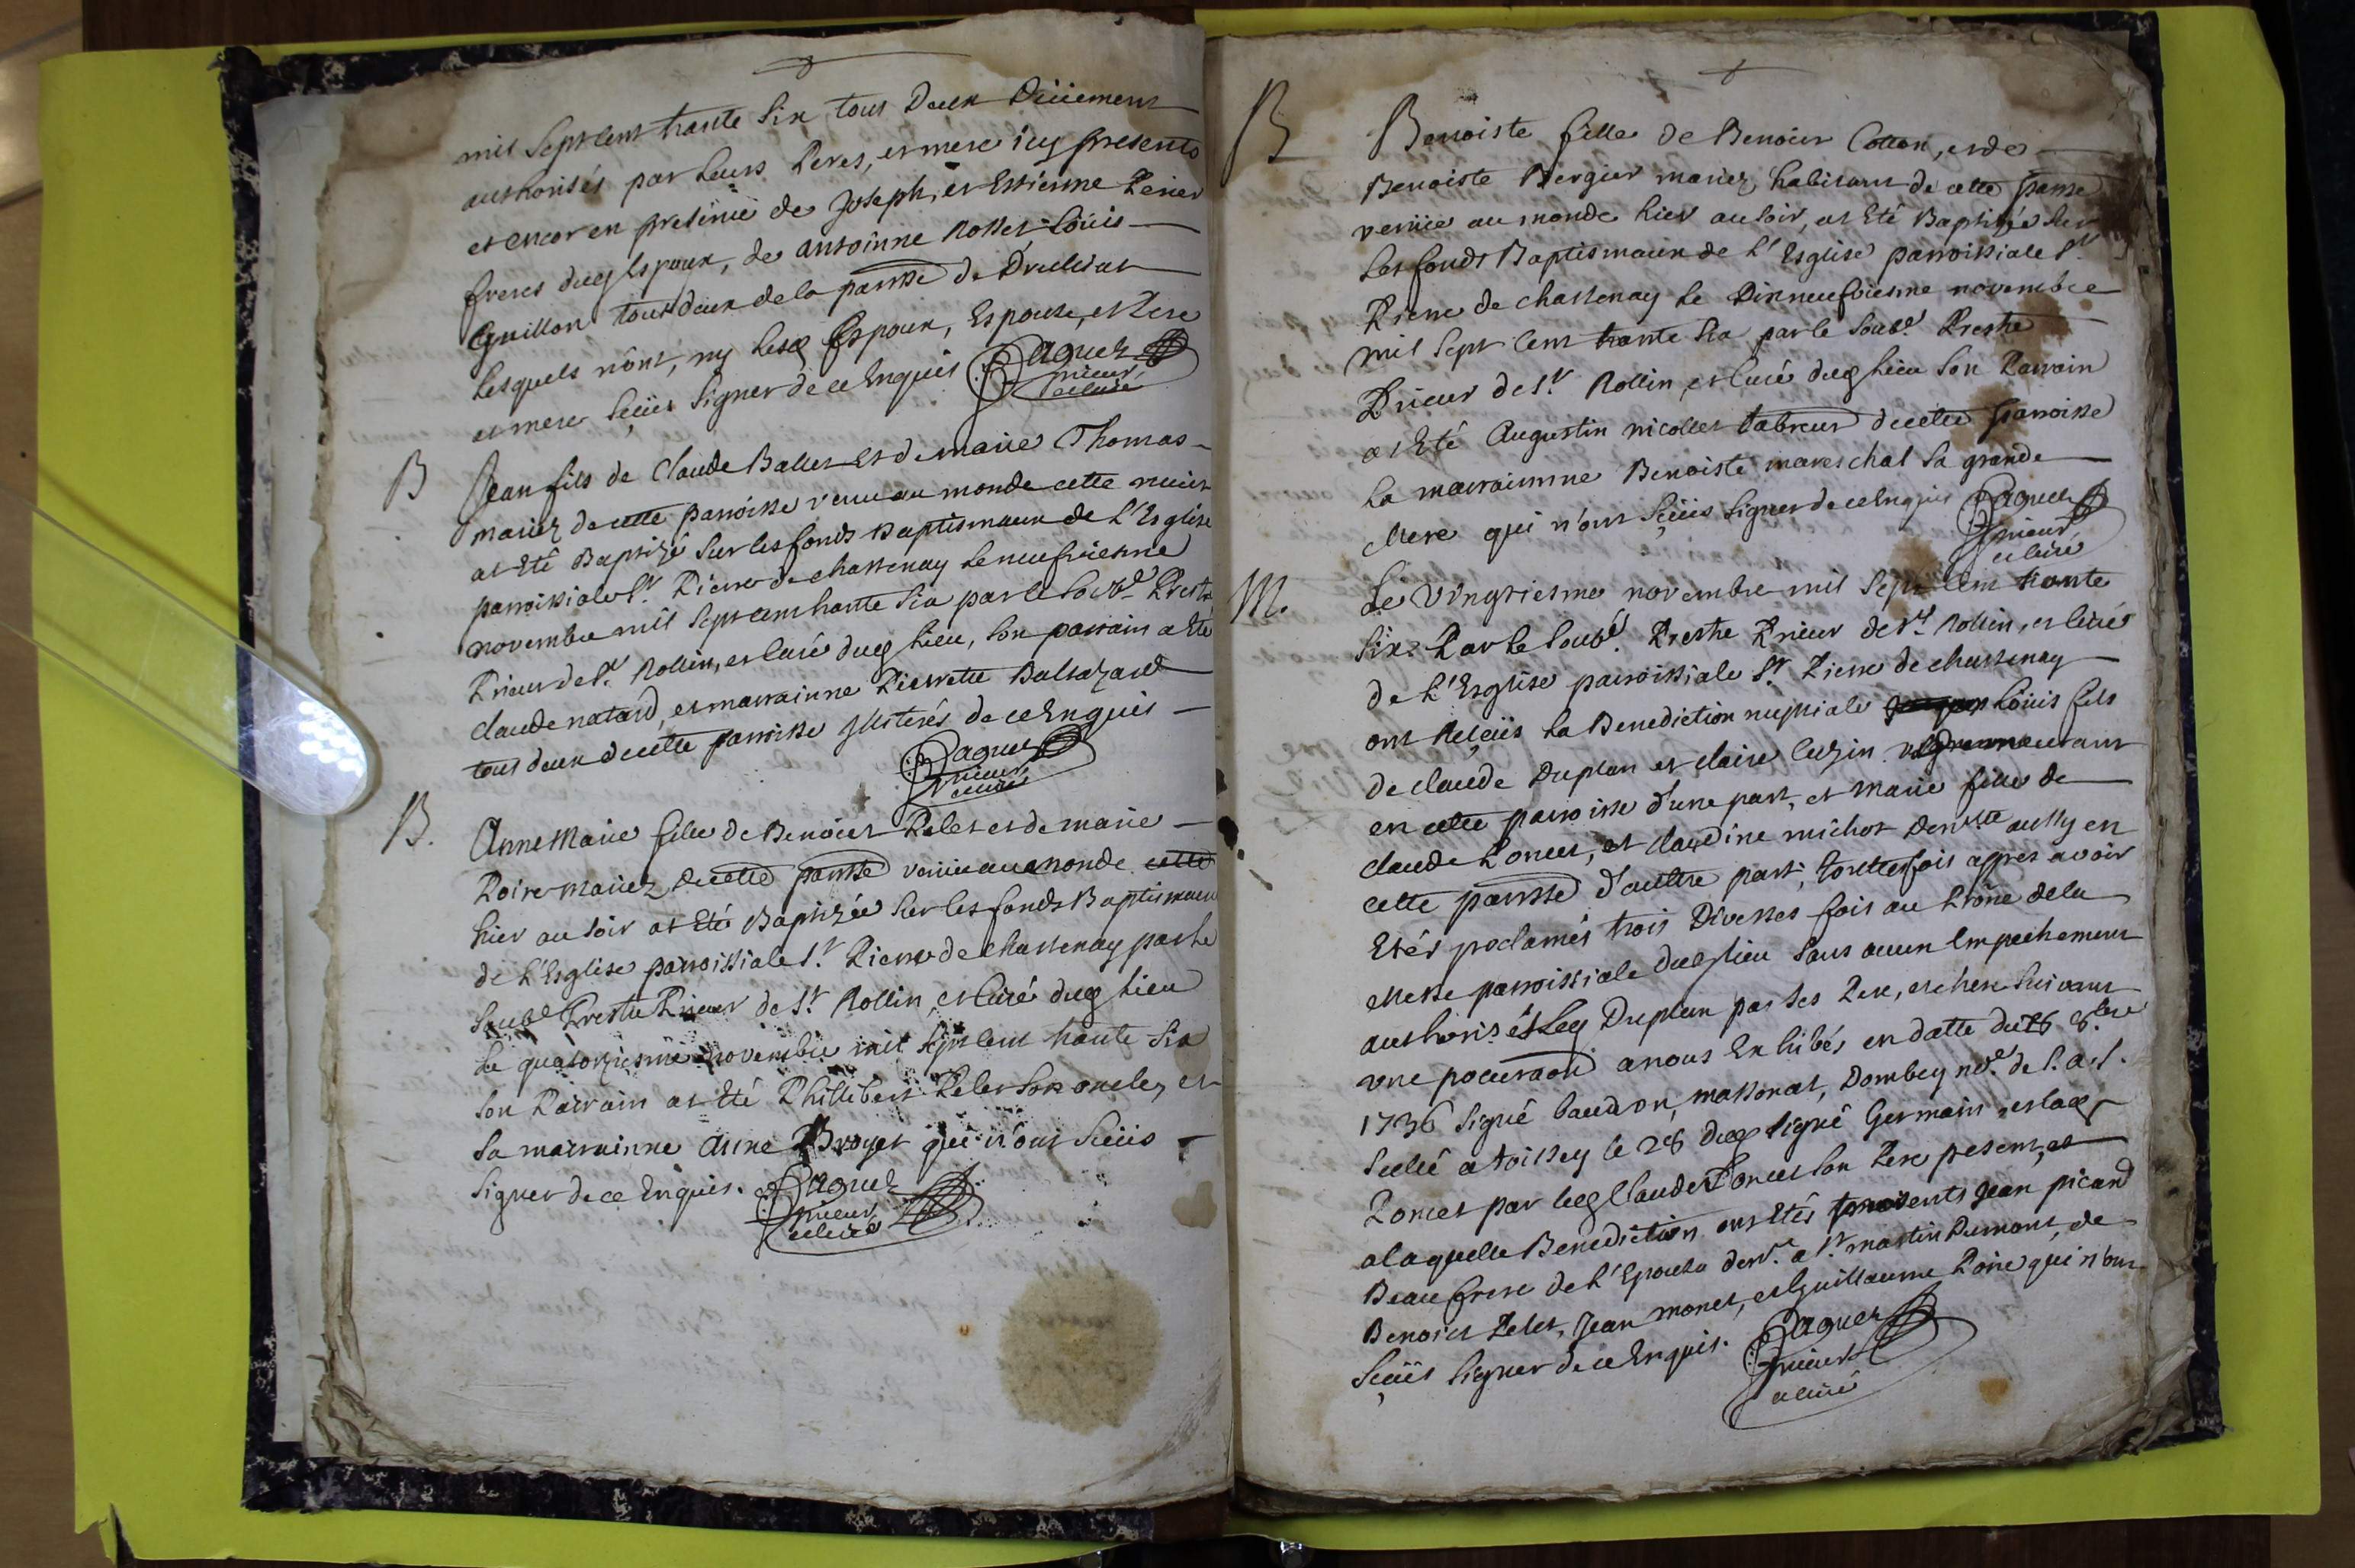 mil Sept Cent trante Six tous Deux Düement
authorisés par leurs Peres, et mere icy presents
et encor en presence de Joseph, et Estienne Perier
freres dug Espoux, de antoinne Rollet Loüis
Guillon tous deux de la parrsse de Druilliat
lesquels n'ont, ny lesq Espoux, Espouse, et Pere
et mere Sçeüs Signer de ce Enquis Paquet
prieur
et curé
B Jean fils de Claude Ballet Et de marie Thomas
mariez de cette parroisse venu au monde cette nuit
at Eté Baptizé Sur les fonds Baptismaux de L'Eglise
parroissiale St. Pierre de chastenay le neufviesme
novembre mil Sept cent trante Six par le Soubd Prestre
Prieur de St. Rollin, et Curé dug lieu, son parrain a Eté
Claude natard, et marrainne Pierrette Baltazard
tous deux de cette parroisse Illiterés de ce Enquis
Paquet
Prieur
et curé
B. Anne Marie fille de Benoist Pelet et de marie
Poire mariez de cette parrsse venüe au monde cette
hier au Soir at Eté Baptizée Sur les fonds Baptismaux
de L'Eglise parroissiale St. Pierre de Chastenay par le
Soubd Prestre Prieur de St. Rollin, et Curé dug lieu
le quatorziesme novembre mil Sept Cent trante Six
Son Parrain at Eté Phillibert Pelet Son oncle, et
Sa marrainne Anne Broyer qui n'ont Sceüs
Signer de ce Enquis. Paquet
Prieur
et curé
B Benoiste fille de Benoist Cotton, et de
Benoiste Bergier mariez habitants de cette parrsse
venüe au monde hier au Soir, at Eté Baptizée Sur
Les fonds Baptismaux de L'Esglise parroissiale St.
Pierre de chastenay le Dixneufviesme novembre
mil Sept Cent trante Six par le Soubd Prestre
Prieur de St. Rollin, et Curé dug lieu Son Parrain
at Eté Augustin nicollet labreur de cette parroisse
La marrainne Benoiste mareschal Sa grande
Mere qui n'ont Sçeüs Signer de ce Enquis Paquet
prieur
et curé
M. Le Vingtiesme novembre mil Sept Cent trante
Six Par le Soubd. Prestre Prieur de St. Rollin, et Curé
de L'Esglise parroissiale St Pierre de chastenay
ont Reçeüs la Benediction nuptiale Loüis fils
de Claude Duplan et claire Cuzin demeurant
en cette parroisse d'une part, et Marie fille de
Claude Poncet, et Claudine michot Demte aussy en
cette parrsse d'autre part, touttesfois apprez avoir
Etés proclamés trois Diverses fois au Prône de la
Messe parroissiale dug lieu Sans aucun Empechement
authorisés Leq Duplan par Ses Pere, et Mere Suivant
une procuraon a nous Exhibés en datte du 26 8bre
1736 Signé Baudron, massonat, Dombey nore. de S. A. S.
Sellé a toissey le 28 dug Signé Germain, et lag
Poncet par leq Claude Poncet Son Pere present, et
a laquelle Benediction ont Etés presents Jean picard
Beaufrere de L'Epouse demt. a St. martin Dumont, de
Benoist Pelet, Jean monet, et Guillaume Poire qui n'ont
Sçeüs Signer de ce Enquis. Paquet
prieur
et curé